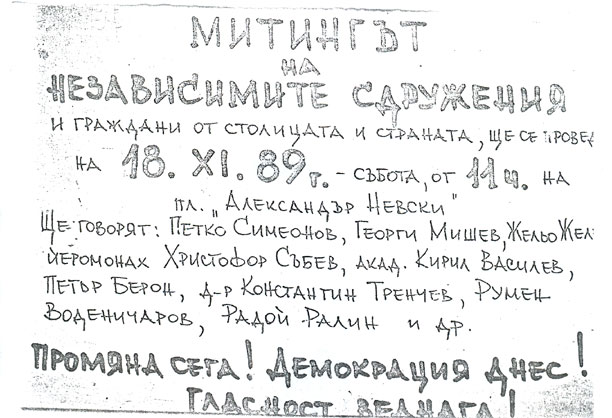 МИТИНГЪТ
НА
НЕЗАВИСИМИТЕ СДРУЖЕНИЯ
И ГРАЖДАНИ ОТ СТОЛИЦАТА И СТРАНАТА, ЩЕ СЕ ПРОВЕД
НА 18. XI. 89 г. – СЪБОТА, ОТ 11 ч. НА
ПЛ. „АЛЕКСАНДЪР НЕВСКИ"
ЩЕ ГОВОРЯТ: ПЕТКО СИМЕОНОВ, ГЕОРГИ МИШЕВ, ЖЕЛЬО ЖЕЛ
ЙЕРОМОНАХ ХРИСТОФОР СЪБЕВ, АКАД. КИРИЛ ВАСИЛЕВ,
ПЕТЪР БЕРОН, Д-Р КОНСТАНТИН ТРЕНЧЕВ, РУМЕН
ВОДЕНИЧАРОВ, РАДОЙ РАЛИН И ДР.
ПРОМЯНА СЕГА! ДЕМОКРАЦИЯ ДНЕС!
ГЛАСНОСТ ВЕДНАГА!